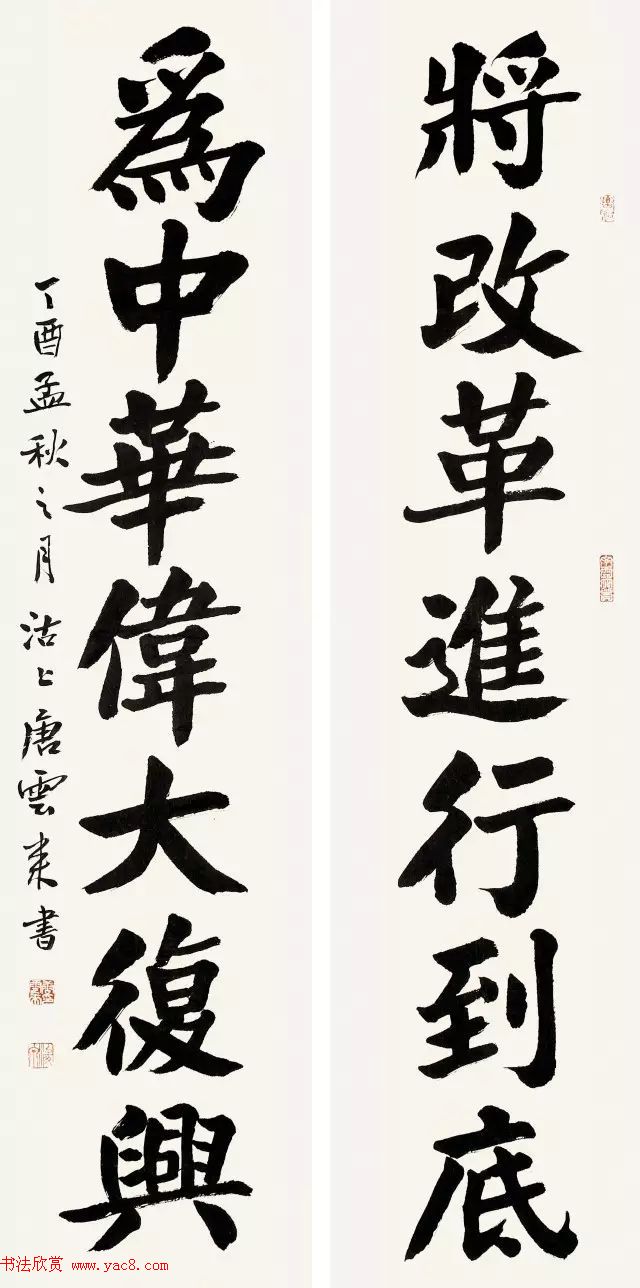 將改革進行到底
為中華偉大復興
丁酉孟秋之月沽上唐雲来書
书法欣赏 www.yac8.com